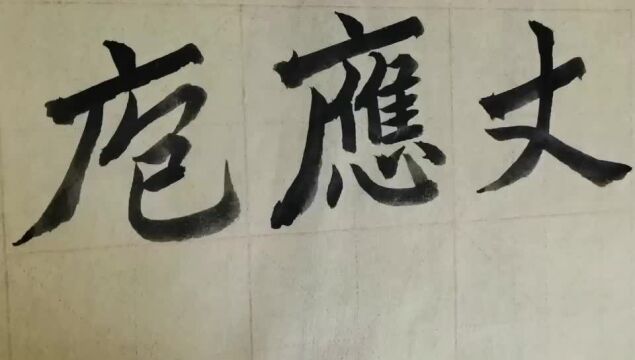 庖應丈